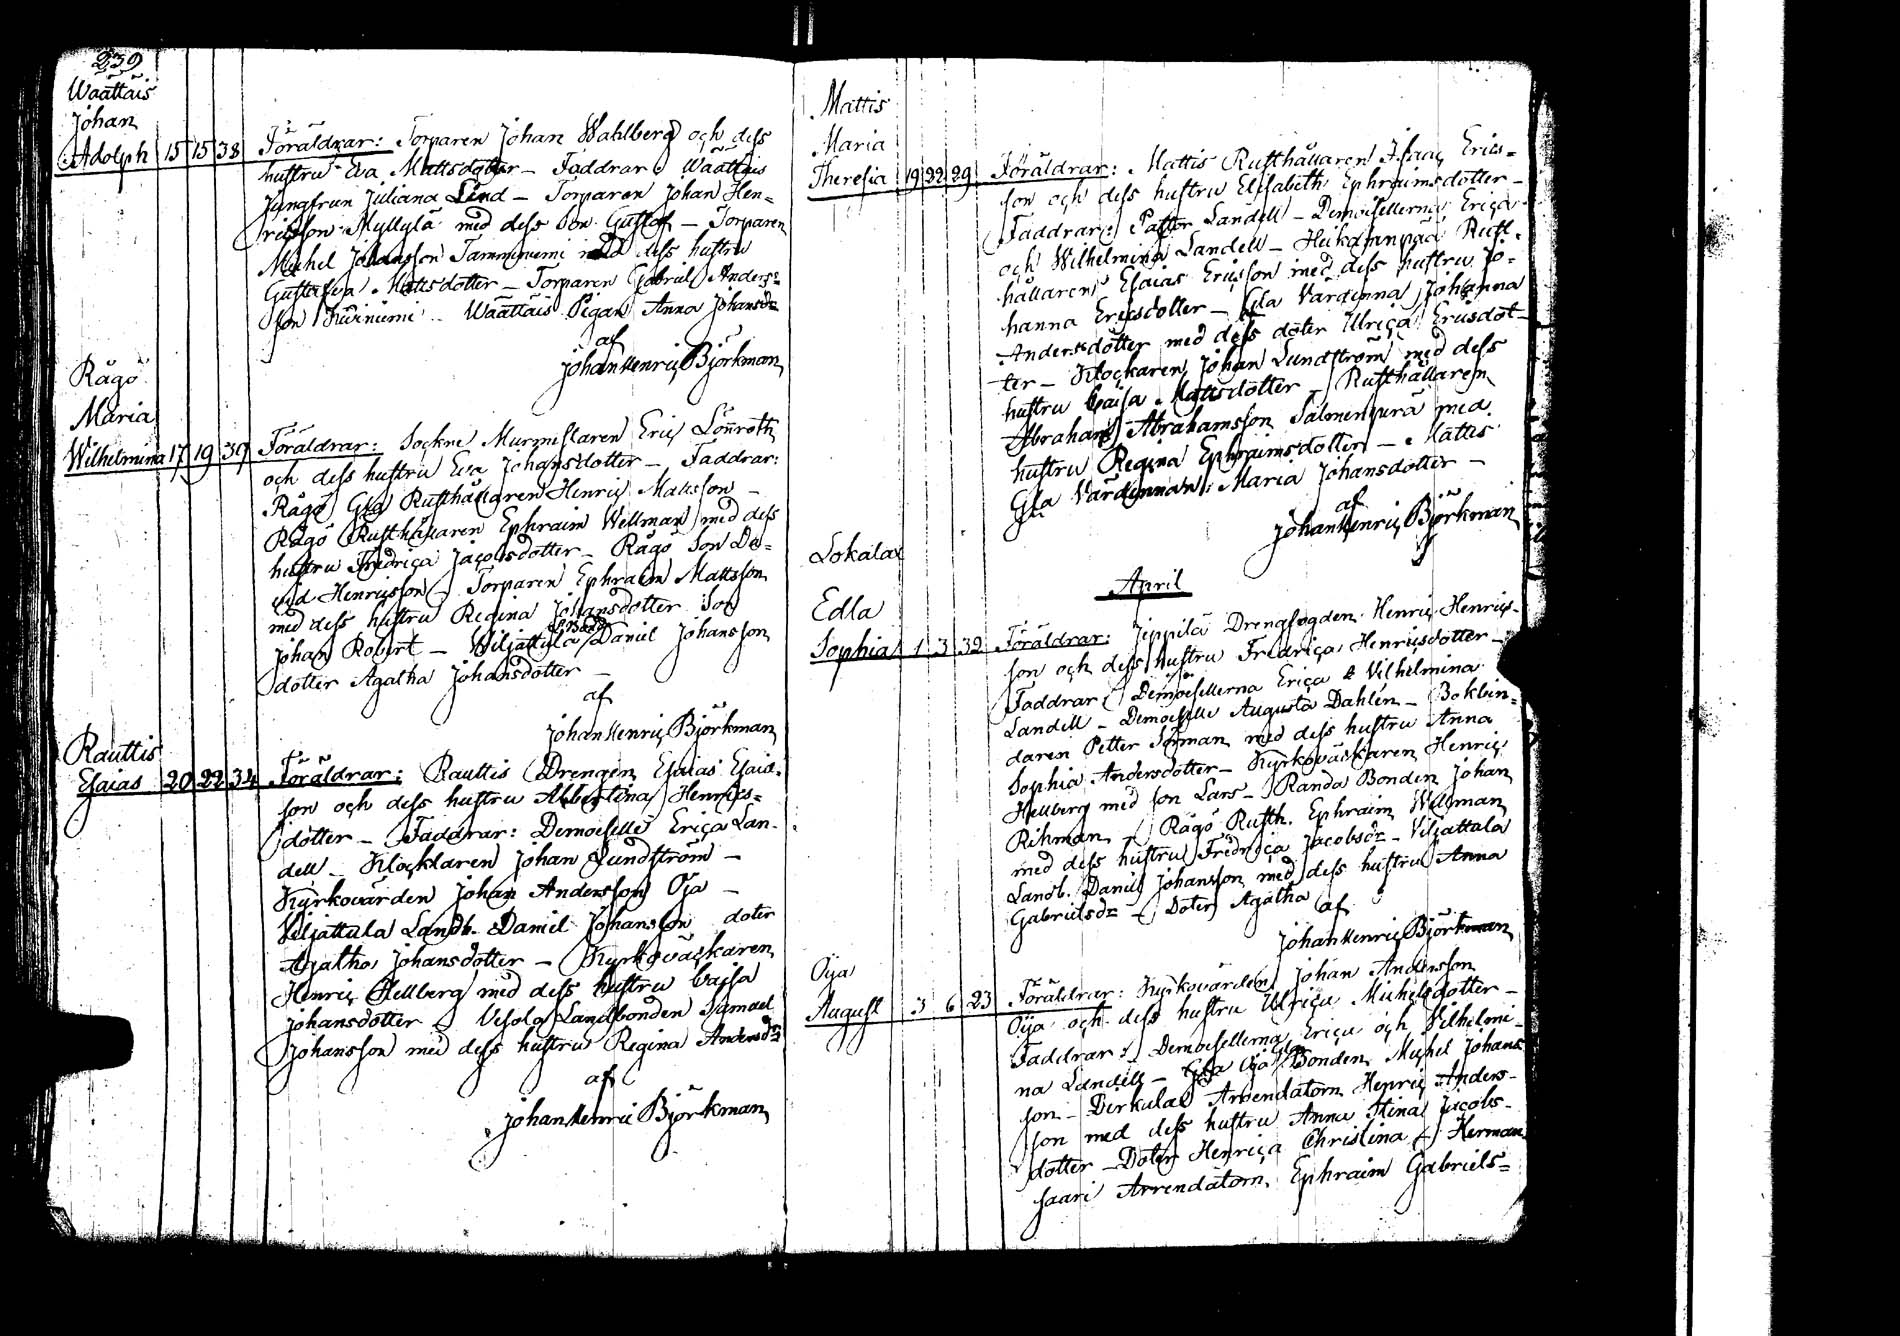 239
Waattais
Johan
Adolph 15 15 38 Föräldrar: Torparen Johan Wahlberg och dess
hustru Eva Mattsdotter – Faddrar: Waattais
Jungfrun Juliana Lind – Torparen Johan Hen=
ricsson Myllylä med dess Son Gustaf – Torparen
Michel Johansson Tamminiemi med dess hustru
Gustafva Mattsdotter – Torparen Gabriel Anders=
son Kuiniemi – Waattais Pigan Anna Johansdr
af
Johan Henric Björkman
Rågö
Maria
Wilhelmina 17 19 39 Föräldrar: Sockne Murmestaren Eric Lönroth
och dess hustru Eva Johansdotter – Faddrar:
Rågö Gla Rusthållaren Henric Mattsson –
Rågö Rusthållaren Ephraim Wellman med dess
hustru Fredrica Jacobsdotter – Rågö Son Da=
vid Henricsson – Torparen Ephraim Mattsson
med dess hustru Regina Johansdotter Son
Johan Robert – Wiljattula Daniel Johansson
dotter Agatha Johansdotter –
af
Johan Henric Björkman
Rauttis
Esaias 20 22 34 Föräldrar: Rauttis Drengen Esaias Esais=
son och dess hustru Albertina Henrics=
dotter – Faddrar: Demoiselle Erica Lan=
dell – Klockaren Johan Lundström –
Kyrkovärden Johan Andersson Öja –
Viljattula Landb. Daniel Johansson doter
Agatha Johansdotter – Kyrkoväckaren
Henric Hellberg med dess hustru Caisa
Johansdotter – Vesola Landbonden Samuel
Johansson med dess hustru Regina Andersdr
af
Johan Henric Björkman
Mattis
Maria
Theresia 19 22 29 Föräldrar: Mattis Rusthållaren Isaac Erics=
son och dess hustru Elisabeth Ephraimsdotter –
Faddrar: Pastor Landell – Demoisellerna Erica
och Wilhelmina Landell – Heikdinpää Rust=
hållaren Esaias Ericsson med dess hustru Jo=
hanna Ericsdotter – Gla Värdinna Johanna
Andersdotter med dess doter Ulrica Ericsdot=
ter – Klockaren Johan Lundström med dess
hustru Caisa Mattsdotter – Rusthållaren
Abraham Abrahamsson Salmenperä med
hustru Regina Ephraimsdotter – Mattis
Gla Värdinnan: Maria Johansdotter –
af
Johan Henric Björkman
April
Lokalax
Edla
Sophia 1 3 32 Föräldrar: Jippilä Drengfogden Henric Henrics=
son och dess hustru Fredrica Henricsdotter –
Faddrar: Demoisellerna Erica & Vilhelmina
Landell – Demoiselle Augusta Dahlén – Bokbin=
daren Petter Sirman med dess hustru Anna
Sophia Andersdotter – Kyrkoväckaren Henric
Hellberg med son Lars – Randa Bonden Johan
Rihman – Rågö Rusth. Ephraim Wellman
med dess hustru Fredrica Jacobsdr – Viljattala
Landb. Daniel Johansson med dess hustru Anna
Gabrielsdr – Doter Agatha af
Johan Henric Björkman
Öja
August 3 6 23 Föräldrar: Kyrkovärden Johan Andersson
Öja och dess hustru Ulrica Michelsdotter –
Faddrar: Demoisellerna Erica och Vilhelmi=
na Landell – Öja Gla Bonden Michel Johans
son – Dirkulax Arrendatorn Henric Anders=
son med dess hustru Anna Stina Jacobs=
dotter – Doter Henrica Christina – Herman
saari Arrendatorn, Ephraim Gabriels=